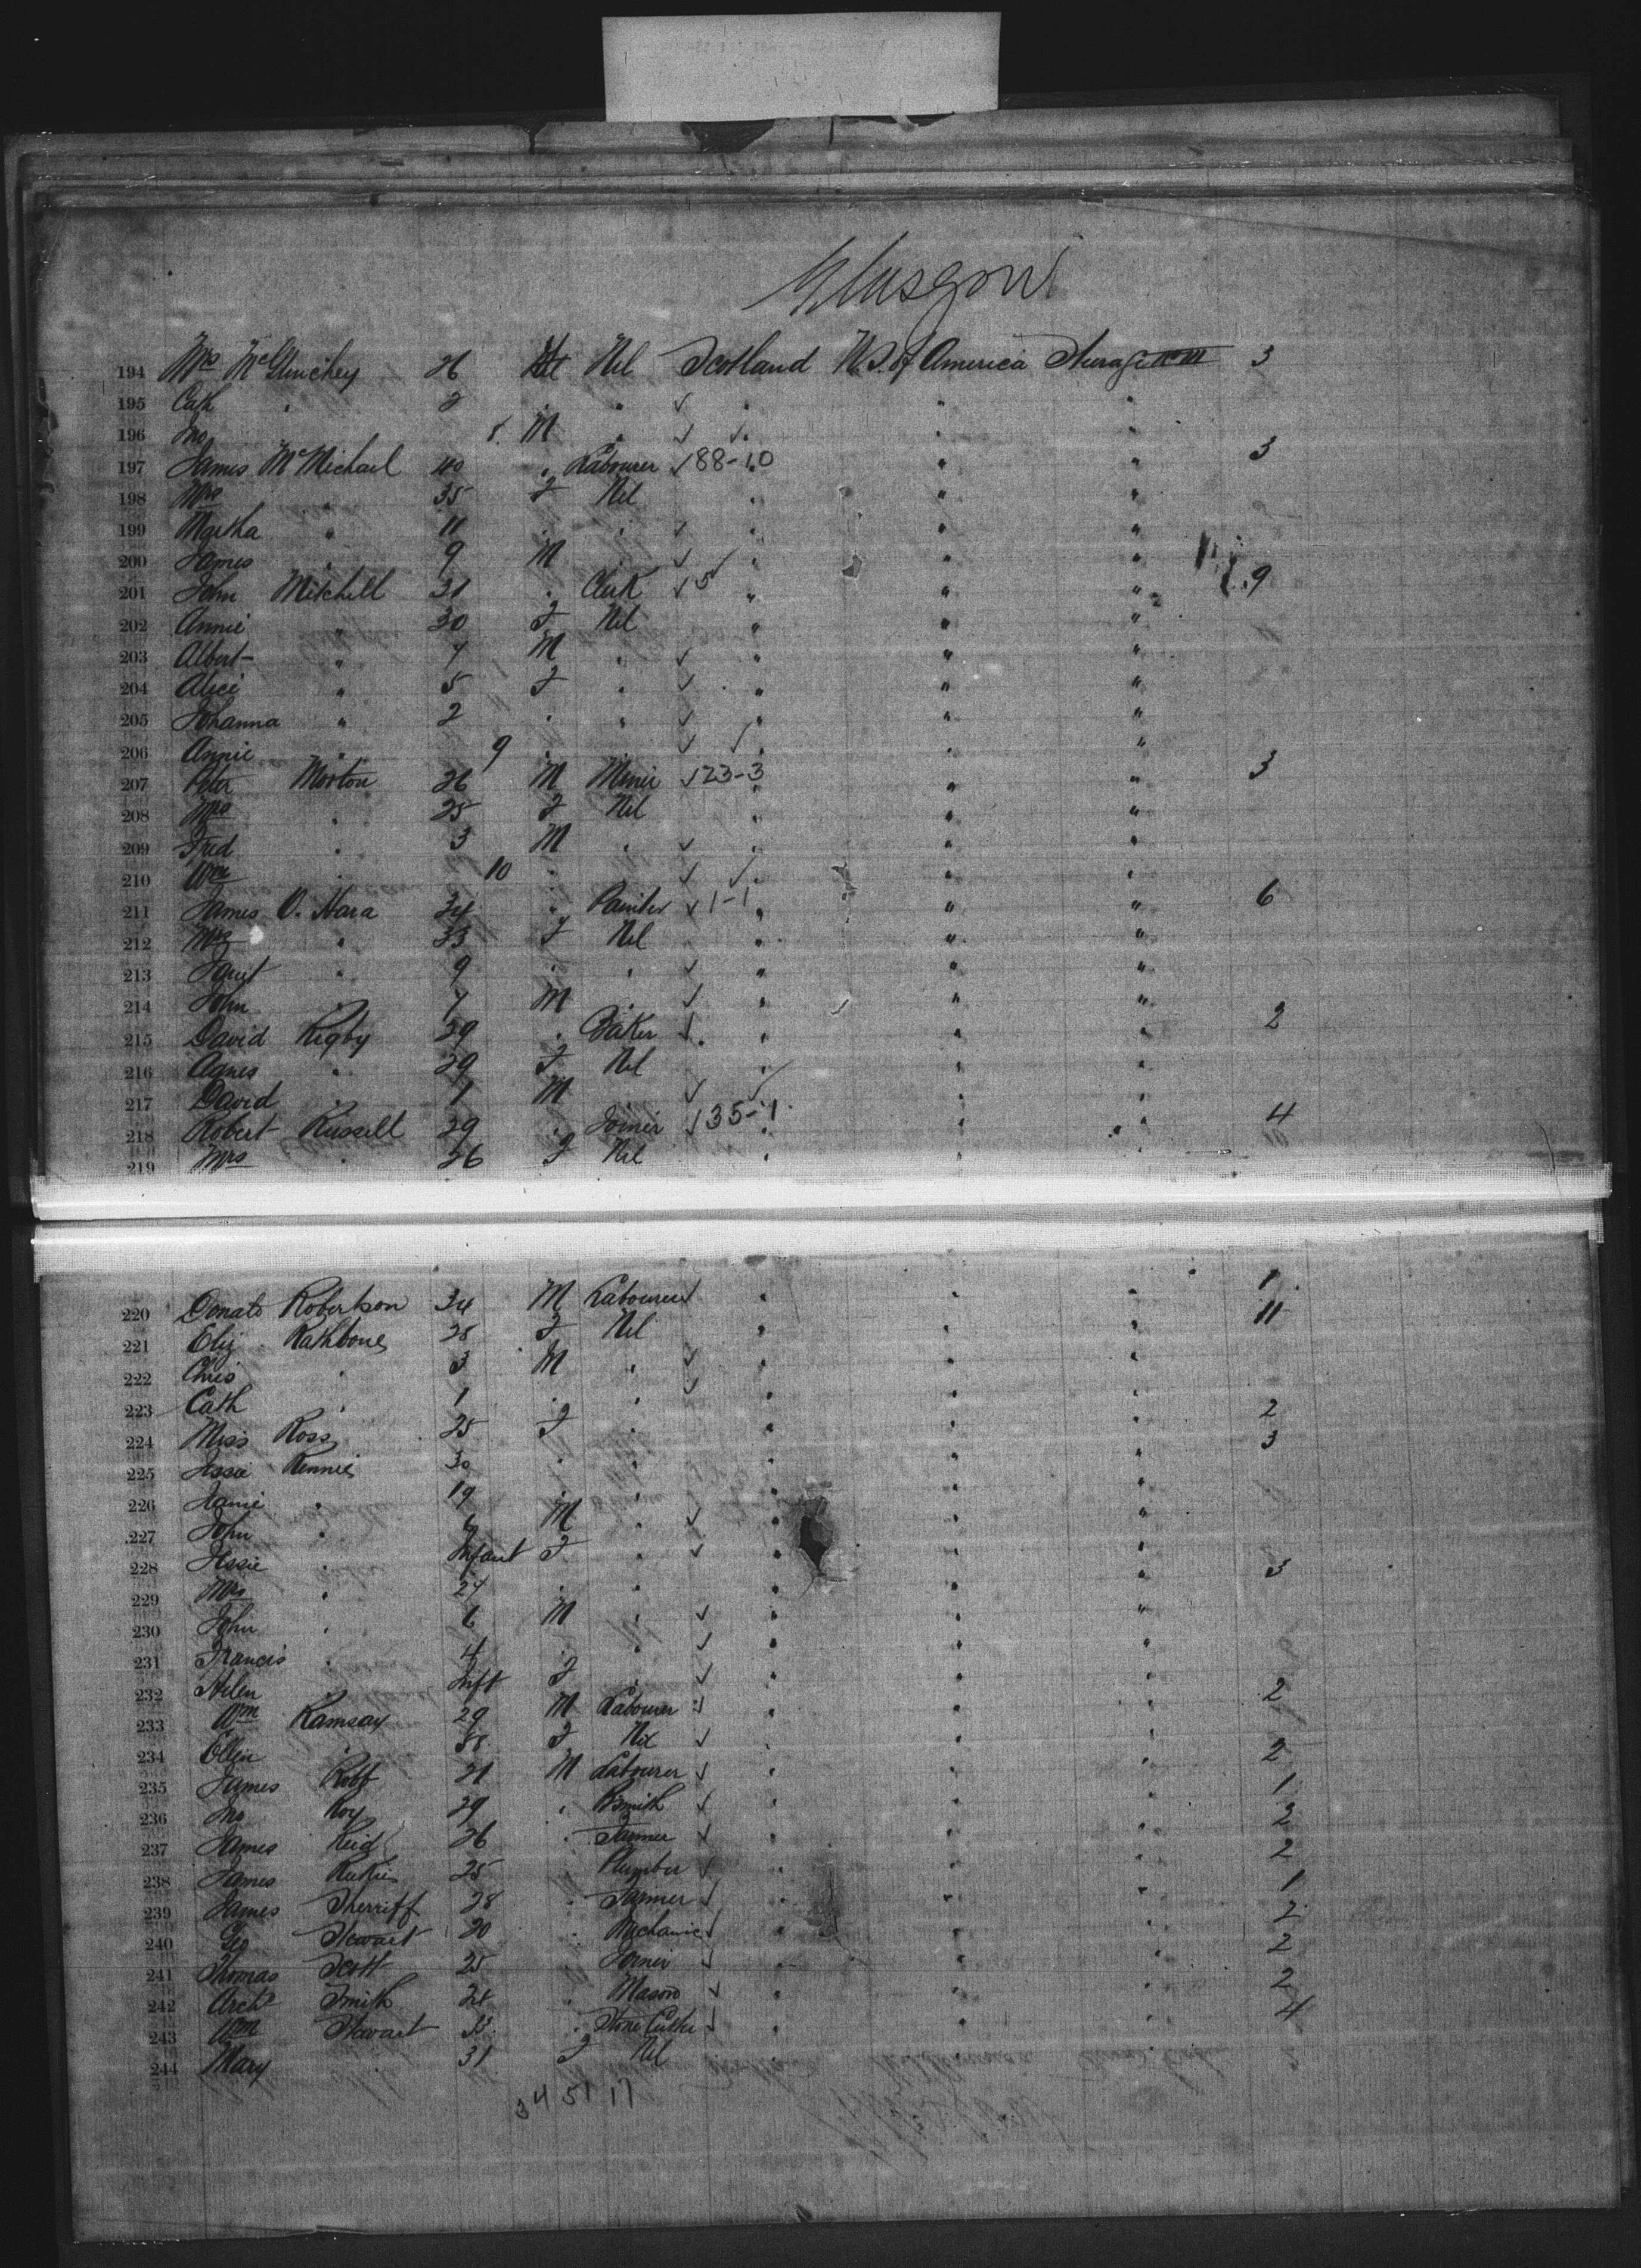 Glasgow
194 Mrs McGlinchey 26 Nil Scotland U.S. of America Steerage 3
195 Cath " 2 " " ✓ " " "
196 Jno 8 M " ✓ ✓ " "
197 James McMichael 40 " Labourer ✓ 88-10 " " 3
198 Mrs " 35 F Nil " " "
199 Martha " 11 " " ✓ " " "
200 James " 9 M " ✓ ✓ " " "
201 John Mitchell 31 " Clerk ✓ 5 " " " 9
202 Annie " 30 F Nil " " "
203 Albert " 7 M " ✓ " " "
204 Alice " 5 F " ✓ " " "
205 Johanna " 2 " " ✓ " " "
206 Annie " 9 " ✓ ✓ " " "
207 Peter Morton 26 M Miner ✓ 23-3 " " " 3
208 Mrs " 25 F Nil " " "
209 Fred " 3 M " ✓ " " "
210 Wm " 10 " " ✓ ✓ " " "
211 James O. Hara 34 " Painter ✓ 1-1 " " " 6
212 Mrs " 33 F Nil " " "
213 Janet " 9 " " ✓ " " "
214 John " 7 M " ✓ " " "
215 David Rigby 29 " Baker ✓ " " " 2
216 Agnes " 29 F Nil " " "
217 David " 1 M ✓ ✓ " " "
218 Robert Russell 29 " Joiner ✓ 35-1 " " " 4
219 Mrs " 26 F Nil " " "
220 Donato Robertson 34 M Labourer ✓ " " " 1
221 Eliz Rathbone 28 F Nil " " " 11
222 Chris " 3 M " ✓ " " "
223 Cath " 1 " " ✓ " " "
224 Miss Ross 25 F " " " " 2
225 Jessie Rennie 30 " " " " " 3
226 Janie " 19 " " " " "
227 John " 6 M " ✓ " " "
228 Jessie " Infant F " ✓ " " "
229 Mrs " 27 " " " " " 3
230 John " 6 M " ✓ " " "
231 Francis " 4 " " ✓ " " "
232 Helen " Inft F " ✓ " " "
233 Wm Ramsay 29 M Labourer ✓ " " " 2
234 Ellen " 38 F Nil ✓ " " "
235 James Robb 21 M Labourer ✓ " " " 2
236 Jno Roy 29 " Bsmith ✓ " " " 1
237 James Reid 26 " Farmer ✓ " " " 2
238 James 25 " Plumber ✓ " " " 2
239 James Sherriff 28 " Farmer ✓ " " " 1
240 Geo Stewart 20 " Mechanic ✓ " " " 2
241 Thomas Scott 25 " Joiner ✓ " " " 2
242 Archd Smith 24 " Mason ✓ " " " 2
243 Wm Stewart 33 " Stone Cutter ✓ " " " 4
244 Mary " 31 F Nil " " "
3 4 51 17